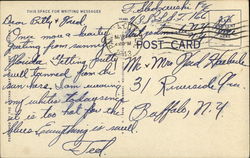 THIS SPACE FOR WRITING MESSAGES
Dear Betty & Fred.
Once more a
greeting from sunny
Florida. Getting pretty
well tanned from the
sun here. I am wearing
my whites today since
it is too hot for the
blues. Everything is swell.
Ted.
POST CARD
Mr. & Mrs. Fred
31 Riverside Ave.
Buffalo, N.Y.